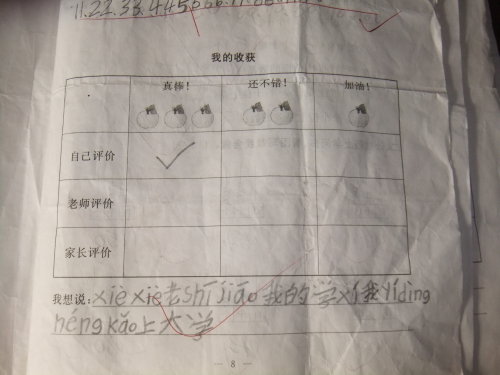 11.22.33.44.55.66.77.88
我的收获
真棒！ 还不错！ 加油！
自己评价
老师评价
家长评价
我想说：xiè xiè老shī jiāo我的学xí我yídìng
néng kǎo上大学
— 8 —